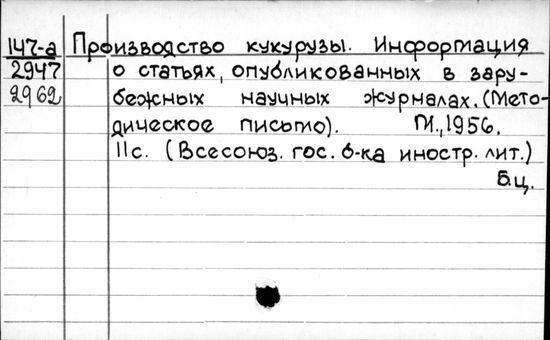 147-а Производство кукурузы. Информация
2947 о статьях, опубликованных в зару-
2962 бежных научных журналах. (Мето-
дическое письмо). М., 1956.
11с. (Всесоюз. гос. б-ка иностр. лит.)
Б.ц.